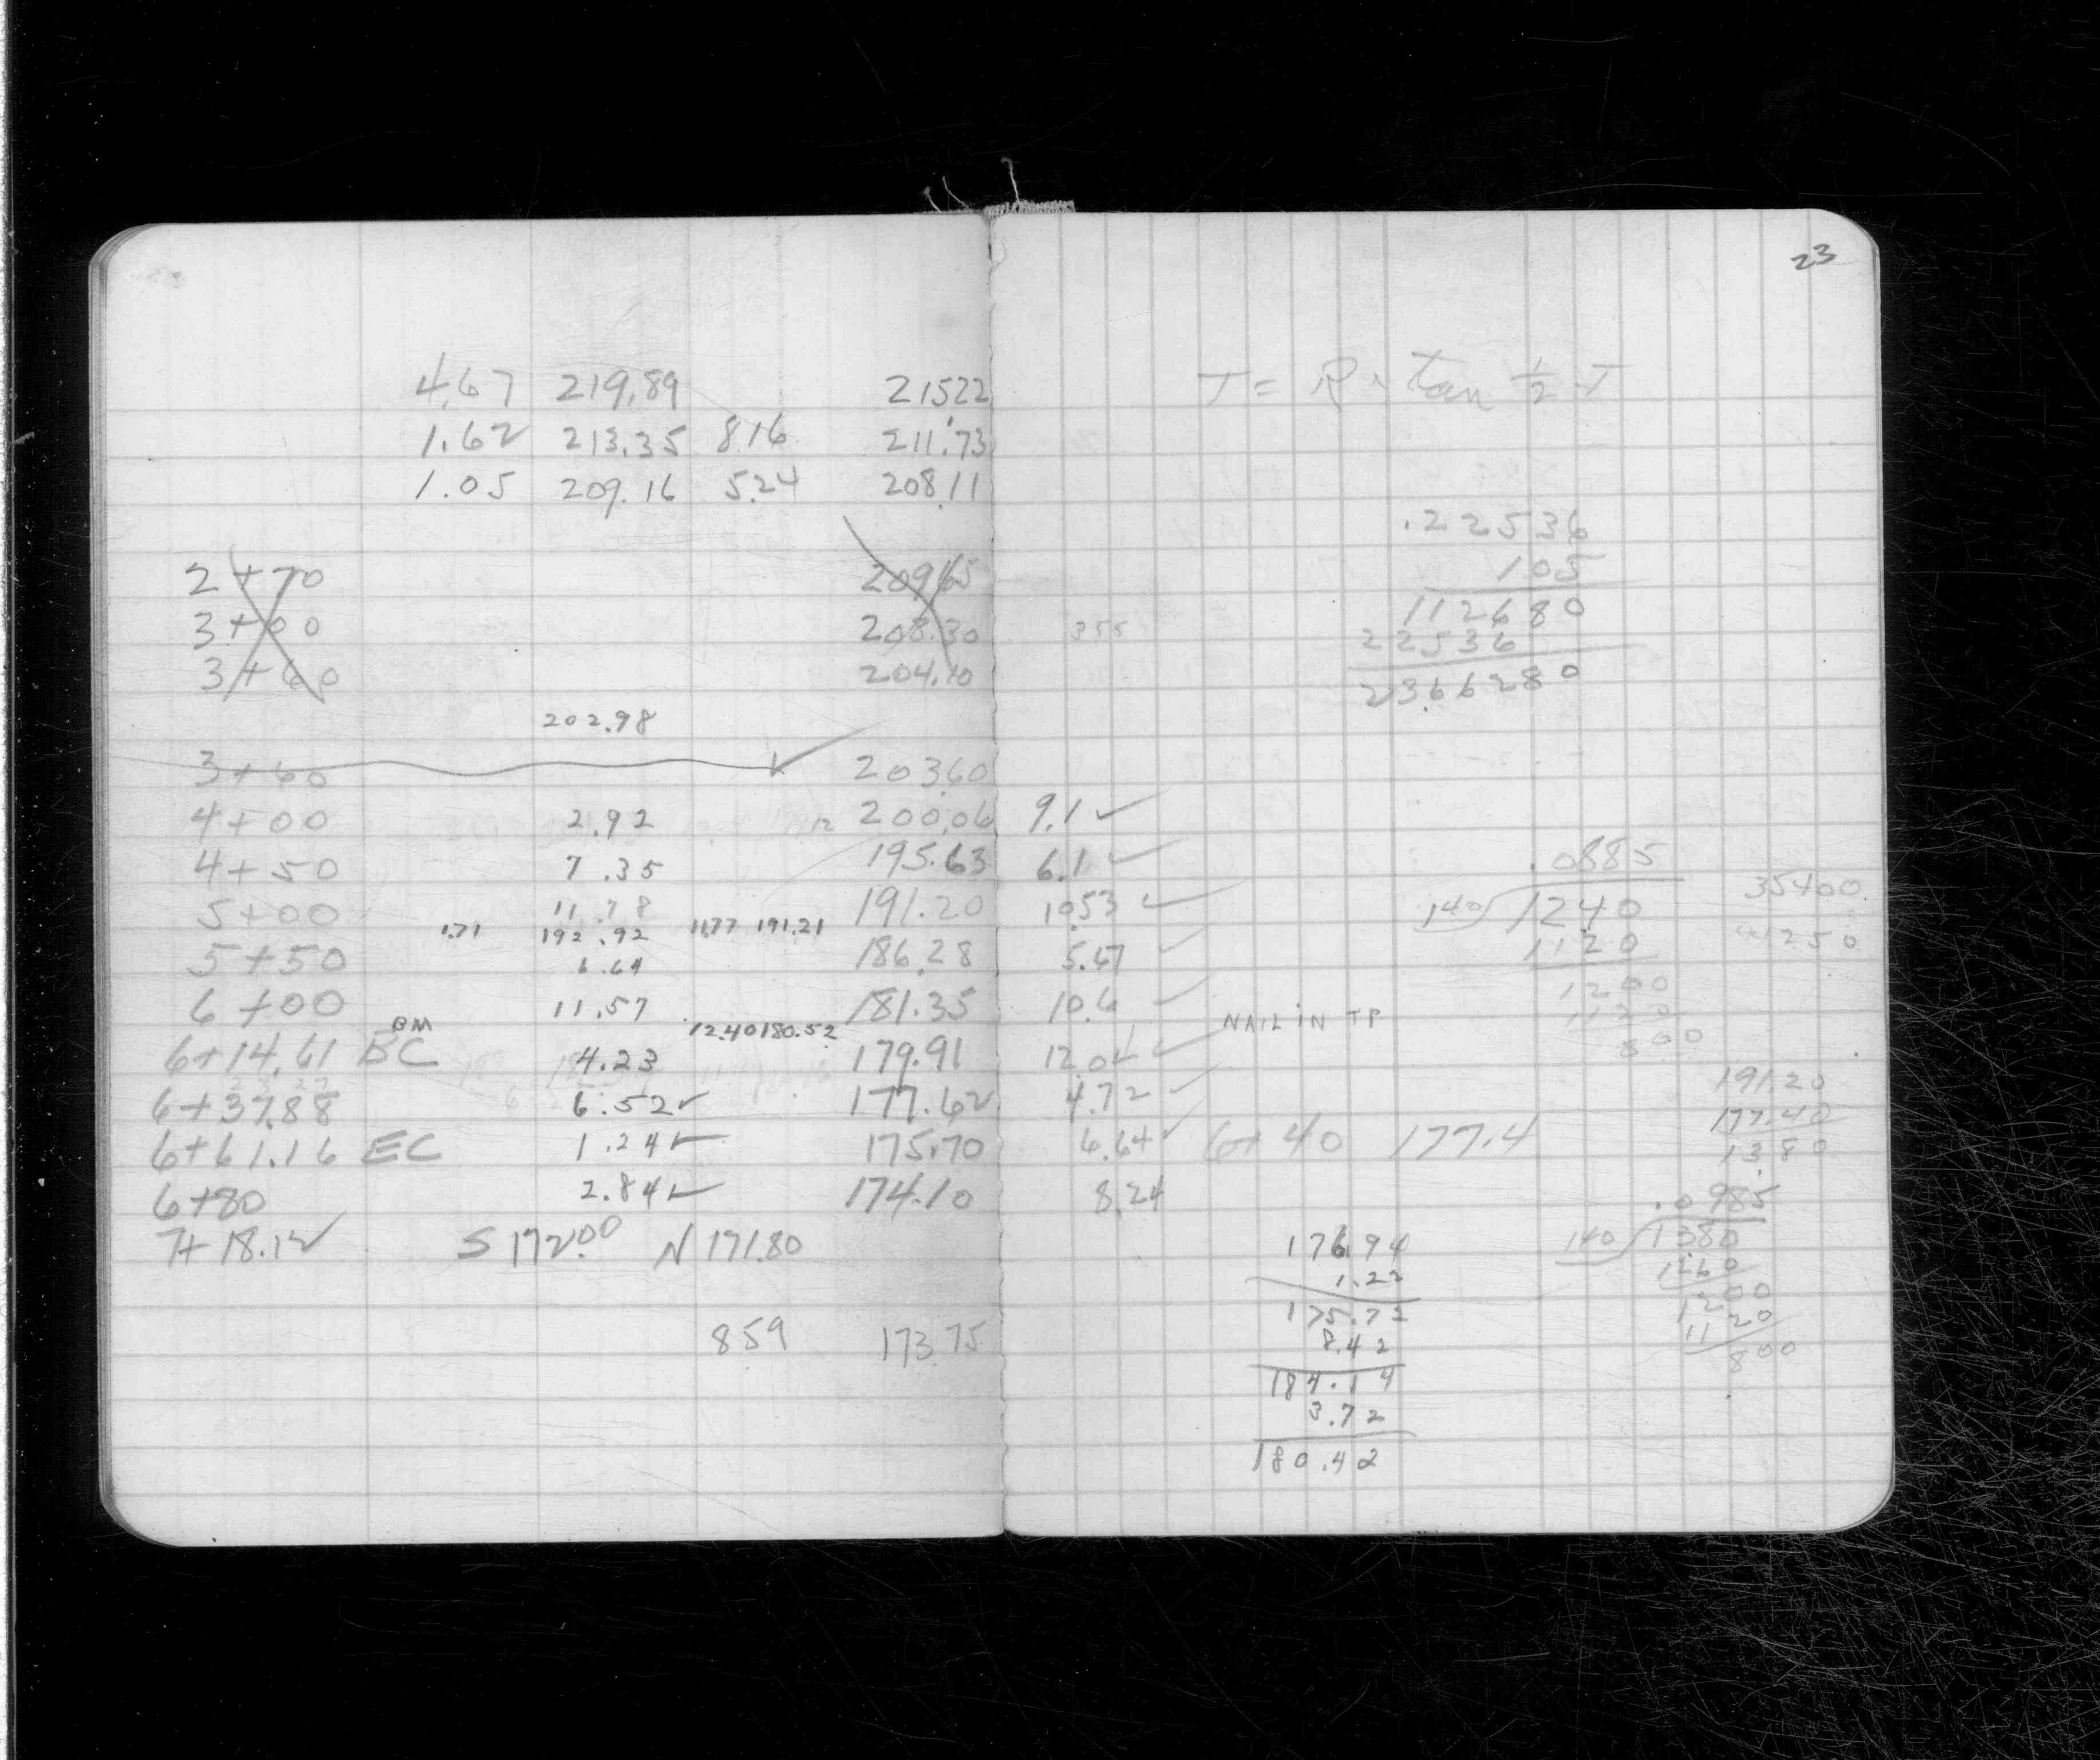 23
4.67 219.89 215.22
1.62 213.35 8.16 211.73
1.05 209.16 5.24 208.11
2+70 209.65
3+00 208.30 355
3+60 204.10
202.98
3+60 203.60
4+00 2.92 12 200.06 9.1 ✓
4+50 7.35 195.63 6.1 ✓
5+00 11.78 191.20 10.53 ✓
1.71 192.92 11.77 191.21
5+50 6.64 186.28 5.67 ✓
6+00 11.57 181.35 10.6 ✓
BM 12.40 180.52 NAIL IN TP
6+14.61 BC 4.23 179.91 12.04 ✓
6+37.88 6.52 ✓ 177.62 4.72 ✓
6+61.16 EC 1.24 ✓ 175.70 6.64 ✓ 6+40 177.4
6+80 2.84 ✓ 174.10 8.24
7+18.12 S 172.00 N 171.80
859 173.75
T = R × tan 1/2 I
.22536
105
112680
22536
23.66280
.0885
140 ) 1240
1120
1200
1120
800
35400
191.20
177.40
13.80
.0985
140 ) 13.80
1260
1200
1120
800
176.94
1.22
175.72
8.42
184.14
3.72
180.42